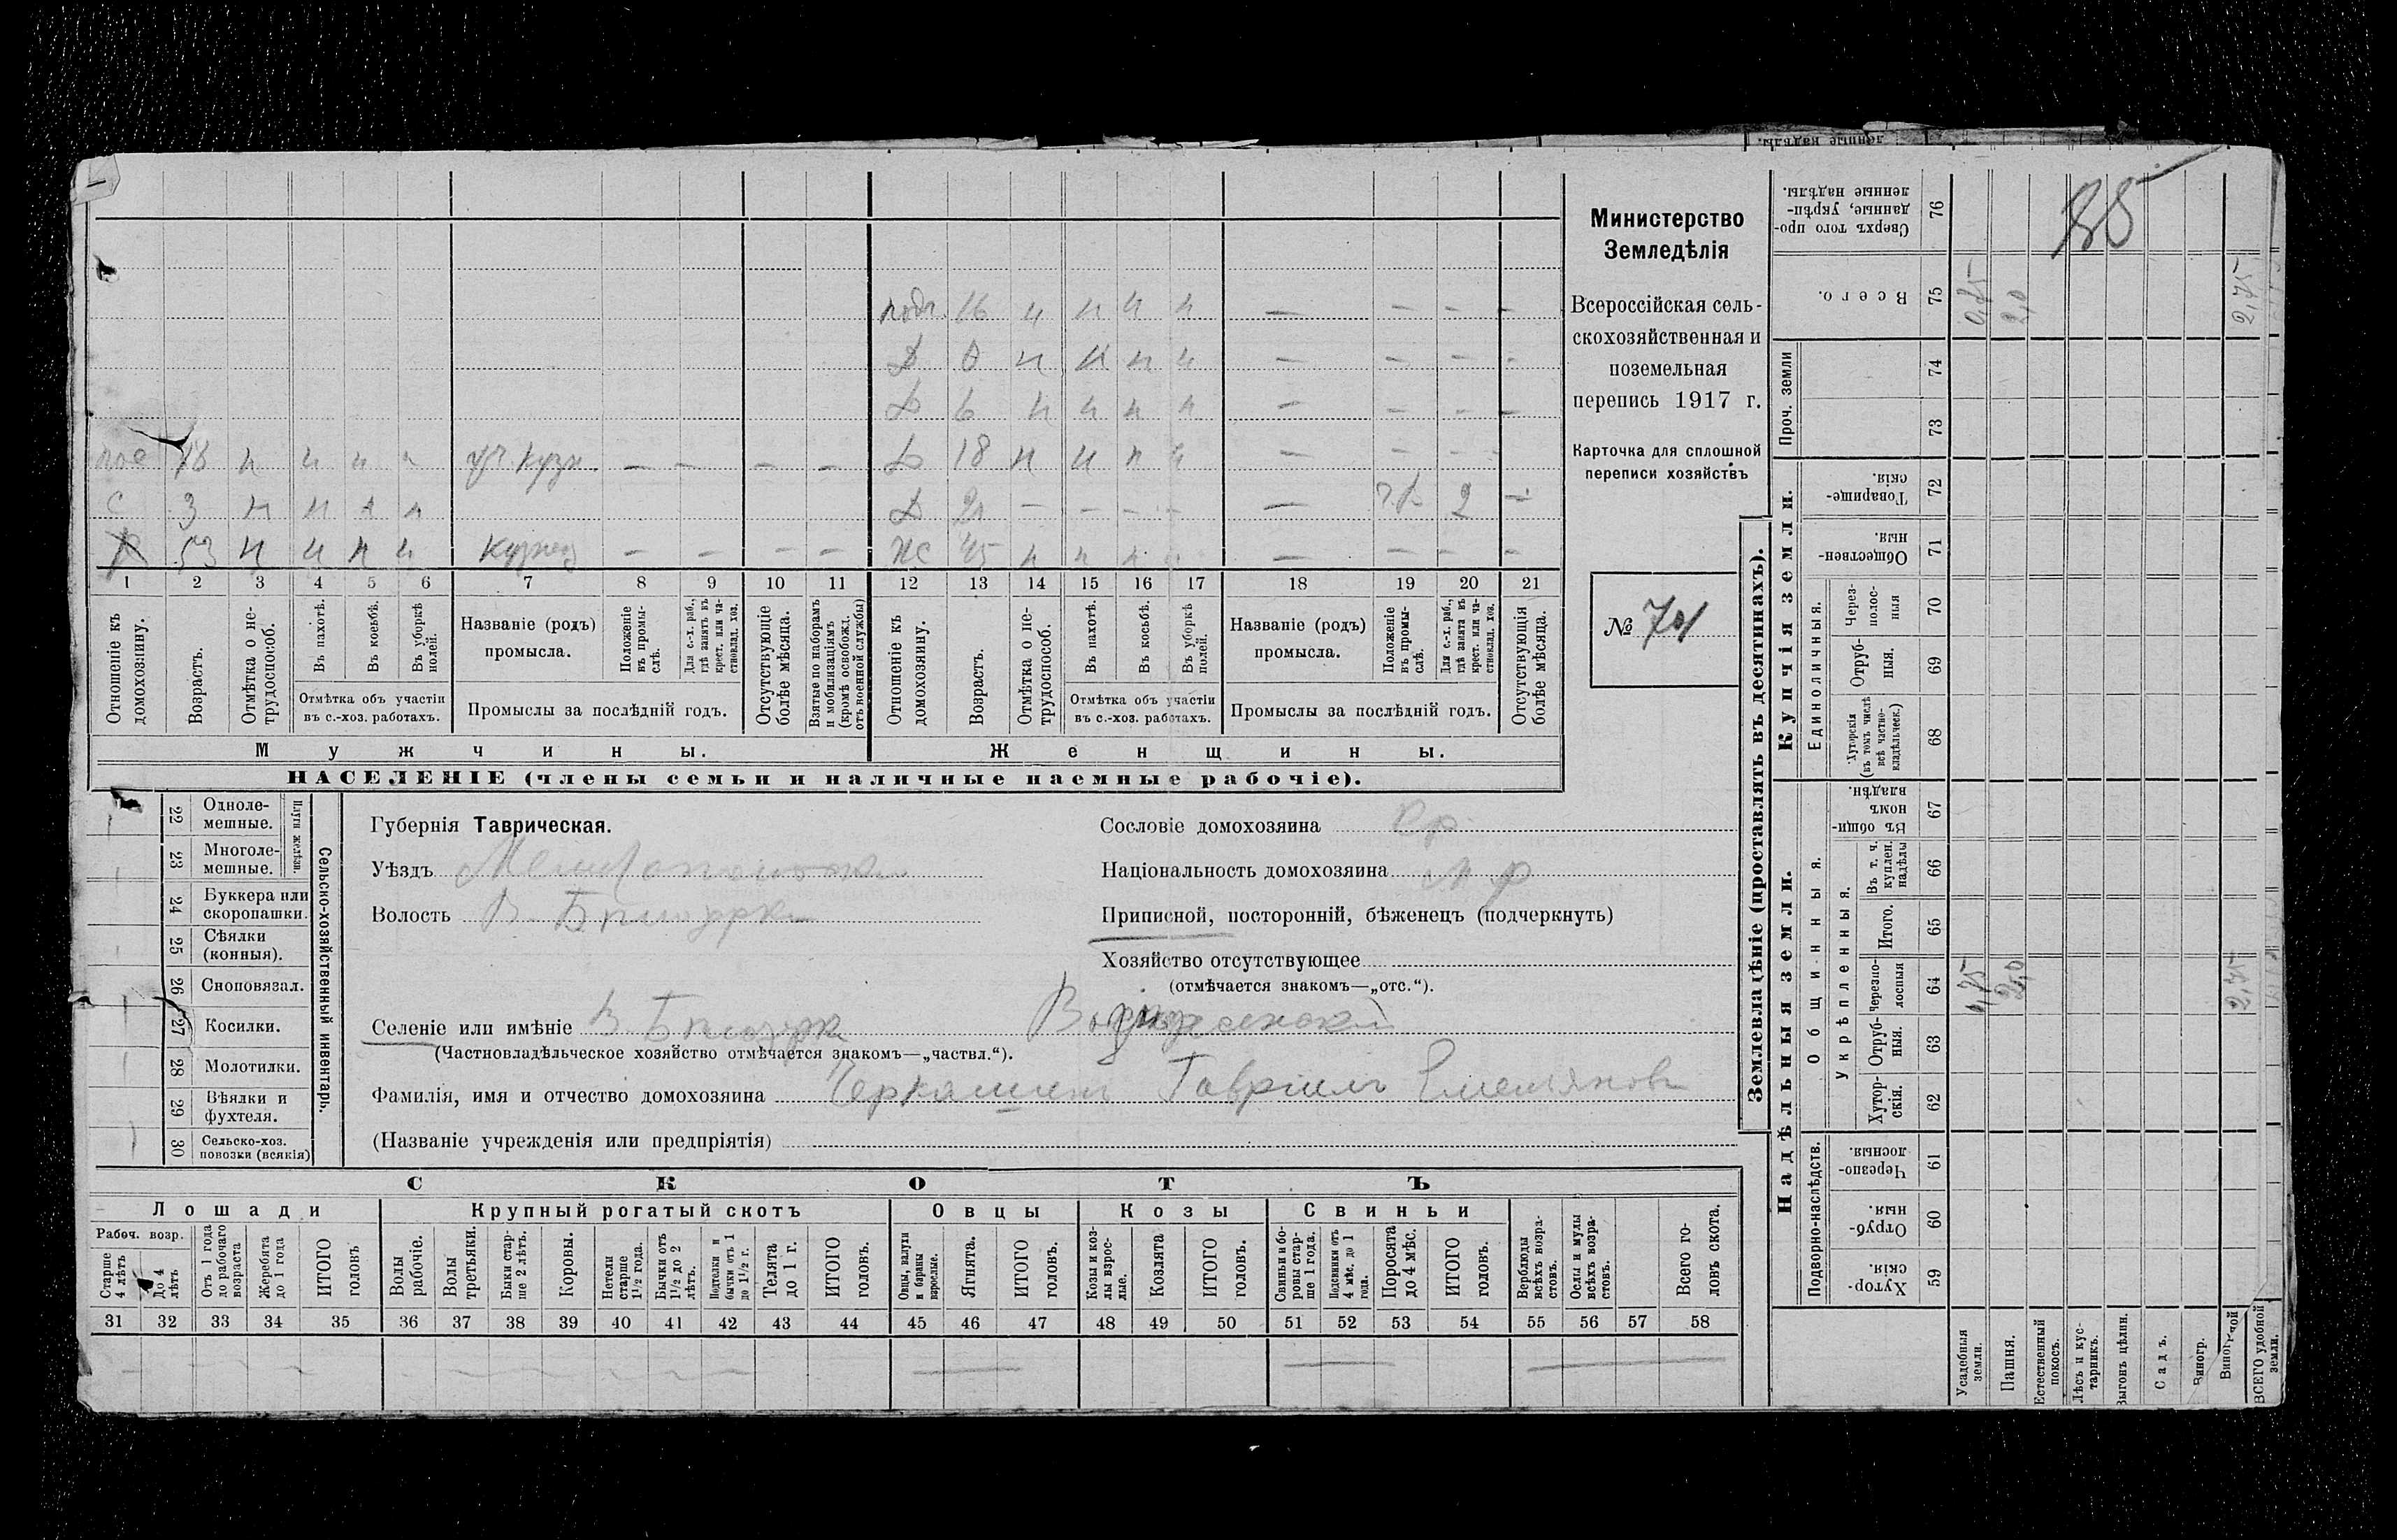 ленные надѣлы.
85
подч 16 н н н н — — — —
Д 8 н н н н — — — —
Д 6 н н н н — — — —
18 н н н н уч. кузн — — — — Д 18 н н н н — — — —
С 3 н н н н Д 21 — — — — — 2 —
Х 53 н н н н кузнец — — — — жс 45 н н н н — — — —
1 2 3 4 5 6 7 8 9 10 11 12 13 14 15 16 17 18 19 20 21
Отношеніе къ домохозяину.
Возрастъ.
Отмѣтка о нетрудоспособ.
Въ пахотѣ.
Въ косьбѣ.
Въ уборкѣ полей.
Отмѣтка объ участіи въ с.-хоз. работахъ.
Названіе (родъ) промысла.
Положеніе въ промыслѣ.
Для с.-х. раб., гдѣ занятъ въ крест. или частновлад. хоз.
Промыслы за послѣдній годъ.
Отсутствующіе болѣе мѣсяца.
Взятые по наборамъ и мобилизаціямъ (кромѣ освобожд. отъ военной службы)
Отношеніе къ домохозяину.
Возрастъ.
Отмѣтка о нетрудоспособ.
Въ пахотѣ.
Въ косьбѣ.
Въ уборкѣ полей.
Отмѣтка объ участіи въ с.-хоз. работахъ.
Названіе (родъ) промысла.
Положеніе въ промыслѣ.
Для с.-х. раб., гдѣ занята въ крест. или частновлад. хоз.
Промыслы за послѣдній годъ.
Отсутствующія болѣе мѣсяца.
Мужчины. Женщины.
НАСЕЛЕНІЕ (члены семьи и наличные наемные рабочіе).
Министерство
Земледѣлія
Всероссійская сель-
скохозяйственная и
поземельная
перепись 1917 г.
Карточка для сплошной
переписи хозяйствъ
№ 701
22 Одноле-мешные.
23 Многоле-мешные.
Плуги желѣзн.
24 Буккера или скоропашки.
25 Сѣялки (конныя).
26 Сноповязал.
27 Косилки.
28 Молотилки.
29 Вѣялки и фухтеля.
30 Сельско-хоз. повозки (всякія)
Сельско-хозяйственный инвентарь.
Губернія Таврическая.
Уѣздъ Мелитопольскій
Волость В. Бѣлозерка
Сословіе домохозяина кр
Національность домохозяина м р
Приписной, посторонній, бѣженецъ (подчеркнуть)
Хозяйство отсутствующее
(отмѣчается знакомъ—„отс.“).
Селеніе или имѣніе В Бѣлозерк Воскресенский
(Частновладѣльческое хозяйство отмѣчается знакомъ—„частвл.“).
Фамилія, имя и отчество домохозяина Черкашинъ Гавріилъ Емельяновъ
(Названіе учрежденія или предпріятія)
СКОТЪ
Лошади Крупный рогатый скотъ Овцы Козы Свиньи
Рабоч. возр.
Старше 4 лѣтъ
До 4 лѣтъ
Отъ 1 года до рабочаго возраста
Жеребята до 1 года
ИТОГО головъ
Волы рабочіе.
Волы третьяки.
Быки старше 2 лѣтъ.
Коровы.
Нетели старше 1½ года.
Бычки отъ 1½ до 2 лѣтъ.
Подтелки и бычки отъ 1 до 1½ г.
Телята до 1 г.
ИТОГО головъ.
Овцы, валухи и бараны взрослые.
Ягнята.
ИТОГО головъ.
Козы и козлы взрослые.
Козлята
ИТОГО головъ.
Свиньи и боровы старше 1 года.
Подсвинки отъ 4 мѣс. до 1 года.
Поросята до 4 мѣс.
ИТОГО головъ.
Верблюды всѣхъ возрастовъ.
Ослы и мулы всѣхъ возрастовъ.
Всего головъ скота.
31 32 33 34 35 36 37 38 39 40 41 42 43 44 45 46 47 48 49 50 51 52 53 54 55 56 57 58
Землевладѣніе (проставлять въ десятинахъ).
Сверхъ того проданные, укрѣпленные надѣлы. 76
Всего. 75 0,75 2,0 2,75
Проч. земли 74 73
Купчія земли.
Товарищескія. 72
Общественныя. 71
Единоличныя.
Черезполосныя 70
Отрубныя. 69
Хуторскія (въ томъ числѣ всѣ частновладѣльческ.) 68
Надѣльныя земли.
Общинныя.
Въ общинномъ владѣн. 67
Укрѣпленныя.
Въ т. ч. куплен. надѣлы 66
Итого. 65
Черезполосныя 64 0,75 2,0 2,75
Отрубныя. 63
Хуторскія. 62
Подворно-наслѣдств.
Черезполосныя. 61
Отрубныя. 60
Хуторскія. 59
Усадебныя земли.
Пашня.
Естественный покосъ.
Лѣсъ и кустарникъ.
Выгонъ цѣлин.
Садъ.
Виногр.
ВСЕГО удобной земли.